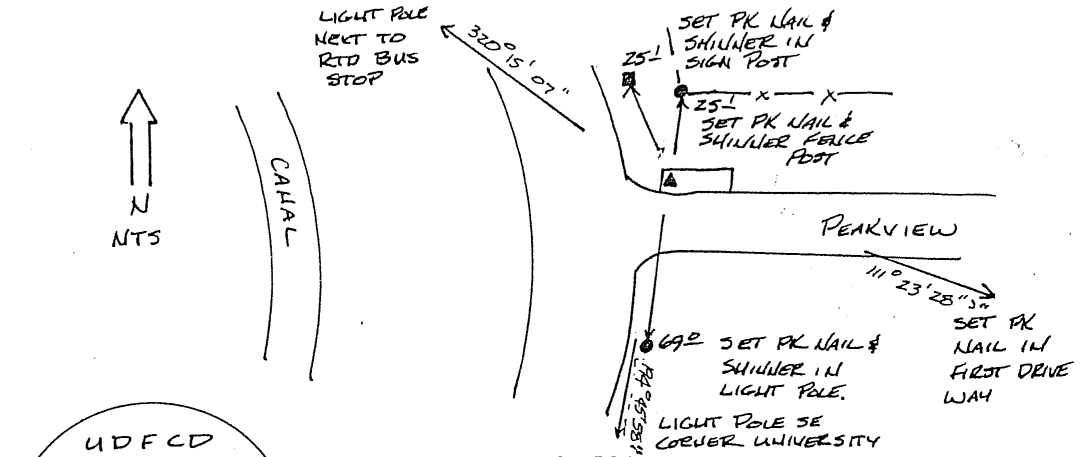 LIGHT POLE
NEXT TO
RTD BUS
STOP
320° 15' 07"
SET PK NAIL &
SHINNER IN
SIGN POST
25.1
25.1
SET PK NAIL &
SHINNER FENCE
POST
CANAL
N
NTS
PEAKVIEW
111° 23' 28"
SET PK
NAIL IN
FIRST DRIVE
WAY
69.0 SET PK NAIL &
SHINNER IN
LIGHT POLE.
LIGHT POLE SE
CORNER UNIVERSITY
UDFCD